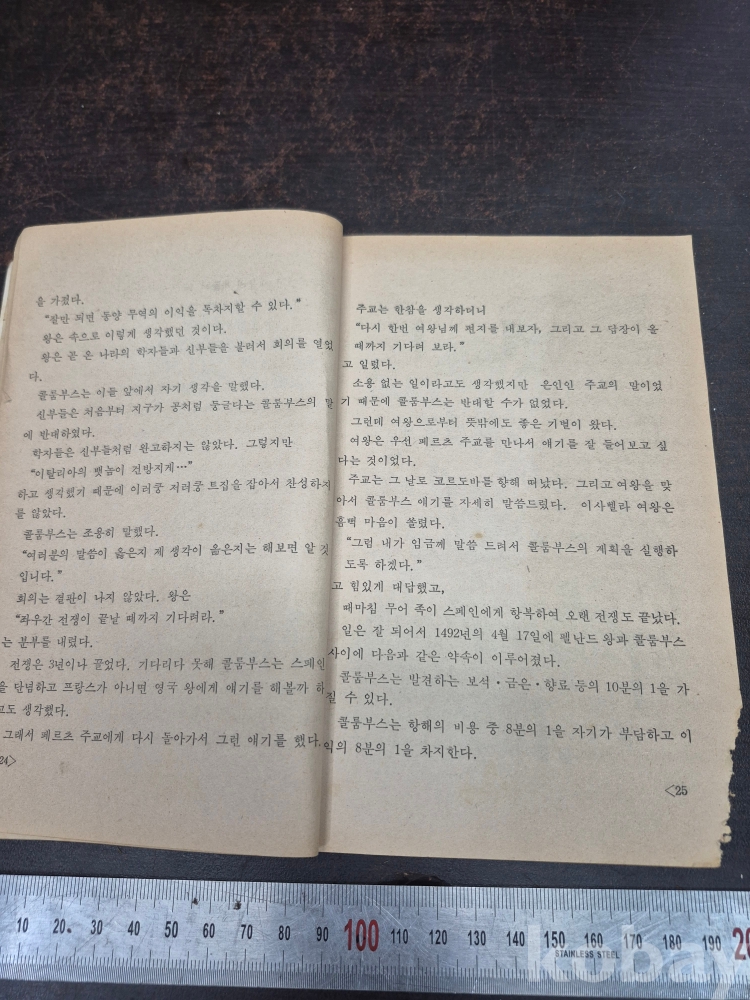 을 가졌다.
"잘만 되면 동양 무역의 이익을 독차지할 수 있다."
왕은 속으로 이렇게 생각했던 것이다.
왕은 곧 온 나라의 학자들과 신부들을 불러서 회의를 열었
다.
콜룸부스는 이들 앞에서 자기 생각을 말했다.
신부들은 처음부터 지구가 공처럼 둥글다는 콜룸부스의 말
에 반대하였다.
학자들은 신부들처럼 완고하지는 않았다. 그렇지만
"이탈리아의 뱃놈이 건방지게…"
하고 생각했기 때문에 이러쿵 저러쿵 트집을 잡아서 찬성하지
를 않았다.
콜룸부스는 조용히 말했다.
"여러분의 말씀이 옳은지 제 생각이 옳은지는 해보면 알 것
입니다."
회의는 결판이 나지 않았다. 왕은
"좌우간 전쟁이 끝날 때까지 기다려라."
는 분부를 내렸다.
전쟁은 3년이나 끌었다. 기다리다 못해 콜룸부스는 스페인
을 단념하고 프랑스가 아니면 영국 왕에게 얘기를 해볼까 하
고도 생각했다.
그래서 페르츠 주교에게 다시 돌아가서 그런 얘기를 했다.
24>
주교는 한참을 생각하더니
"다시 한번 여왕님께 편지를 내보자, 그리고 그 답장이 올
때까지 기다려 보라."
고 일렀다.
소용 없는 일이라고도 생각했지만 은인인 주교의 말이었
기 때문에 콜룸부스는 반대할 수가 없었다.
그런데 여왕으로부터 뜻밖에도 좋은 기별이 왔다.
여왕은 우선 페르츠 주교를 만나서 얘기를 잘 들어보고 싶
다는 것이었다.
주교는 그 날로 코르도바를 향해 떠났다. 그리고 여왕을 맞
아서 콜룸부스 얘기를 자세히 말씀드렸다. 이사벨라 여왕은
흠뻑 마음이 쏠렸다.
"그럼 내가 임금께 말씀 드려서 콜룸부스의 계획을 실행하
도록 하겠다."
고 힘있게 대답했고,
때마침 무어 족이 스페인에게 항복하여 오랜 전쟁도 끝났다.
일은 잘 되어서 1492년의 4월 17일에 펠난드 왕과 콜룸부스
사이에 다음과 같은 약속이 이루어졌다.
콜룸부스는 발견하는 보석·금은·향료 등의 10분의 1을 가
질 수 있다.
콜룸부스는 항해의 비용 중 8분의 1을 자기가 부담하고 이
익의 8분의 1을 차지한다.
<25
10 20 30 40 50 60 70 80 90 100 110 120 130 140 150 160 170 180 190 20
STAINLESS STEEL
kobay